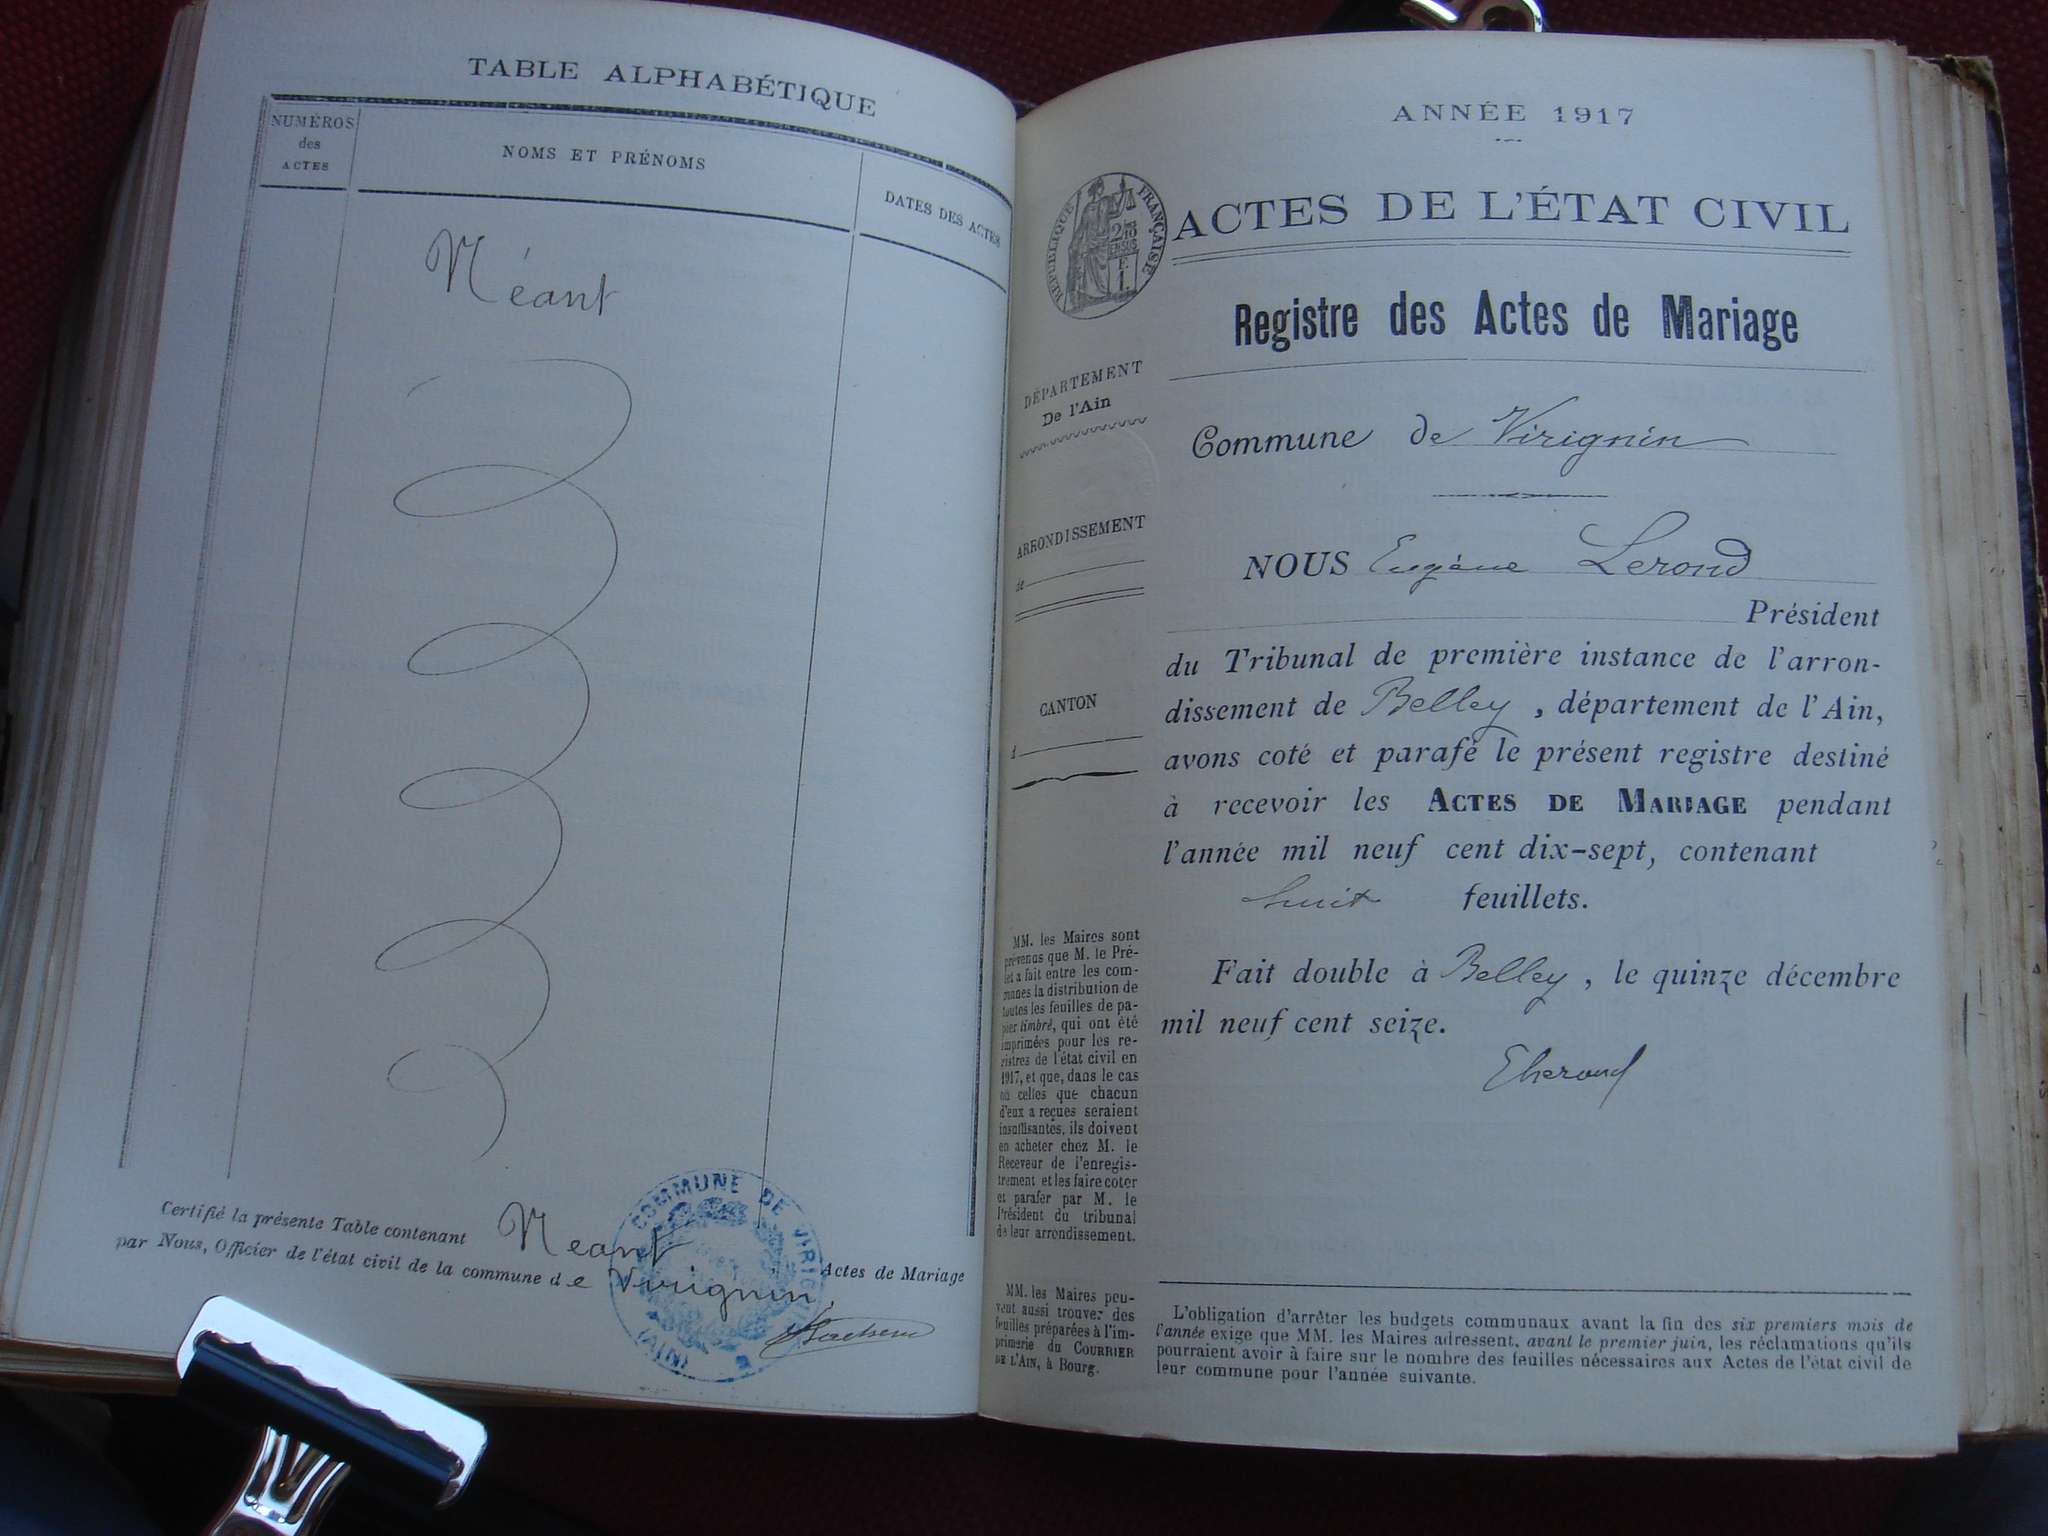 TABLE ALPHABÉTIQUE
NUMÉROS
des
ACTES
NOMS ET PRÉNOMS
DATES DES ACTES
Néant
Certifié la présente Table contenant Neant Actes de Mariage
par Nous, Officier de l'état civil de la commune de Virignin
COMMUNE DE VIRIGNIN
(AIN)
ANNÉE 1917
RÉPUBLIQUE FRANÇAISE
ACTES DE L'ÉTAT CIVIL
Registre des Actes de Mariage
DÉPARTEMENT
De l'Ain
Commune de Virignin
ARRONDISSEMENT
de
NOUS Eugène Lerond
Président
du Tribunal de première instance de l'arron-
dissement de Belley, département de l'Ain,
CANTON
d
avons coté et parafé le présent registre destiné
à recevoir les ACTES DE MARIAGE pendant
l'année mil neuf cent dix-sept, contenant
huit feuillets.
Fait double à Belley, le quinze décembre
mil neuf cent seize.
MM. les Maires sont
prévenus que M. le Pré-
fet a fait entre les com-
munes la distribution de
toutes les feuilles de pa-
pier timbré, qui ont été
imprimées pour les re-
gistres de l'état civil en
1917, et que, dans le cas
où celles que chacun
d'eux a reçues seraient
insuffisantes, ils doivent
en acheter chez M. le
Receveur de l'enregis-
trement et les faire coter
et parafer par M. le
Président du tribunal
de leur arrondissement.
MM. les Maires peu-
vent aussi trouver des
feuilles préparées à l'im-
primerie du COURRIER
DE L'AIN, à Bourg.
L'obligation d'arrêter les budgets communaux avant la fin des six premiers mois de
l'année exige que MM. les Maires adressent, avant le premier juin, les réclamations qu'ils
pourraient avoir à faire sur le nombre des feuilles nécessaires aux Actes de l'état civil de
leur commune pour l'année suivante.